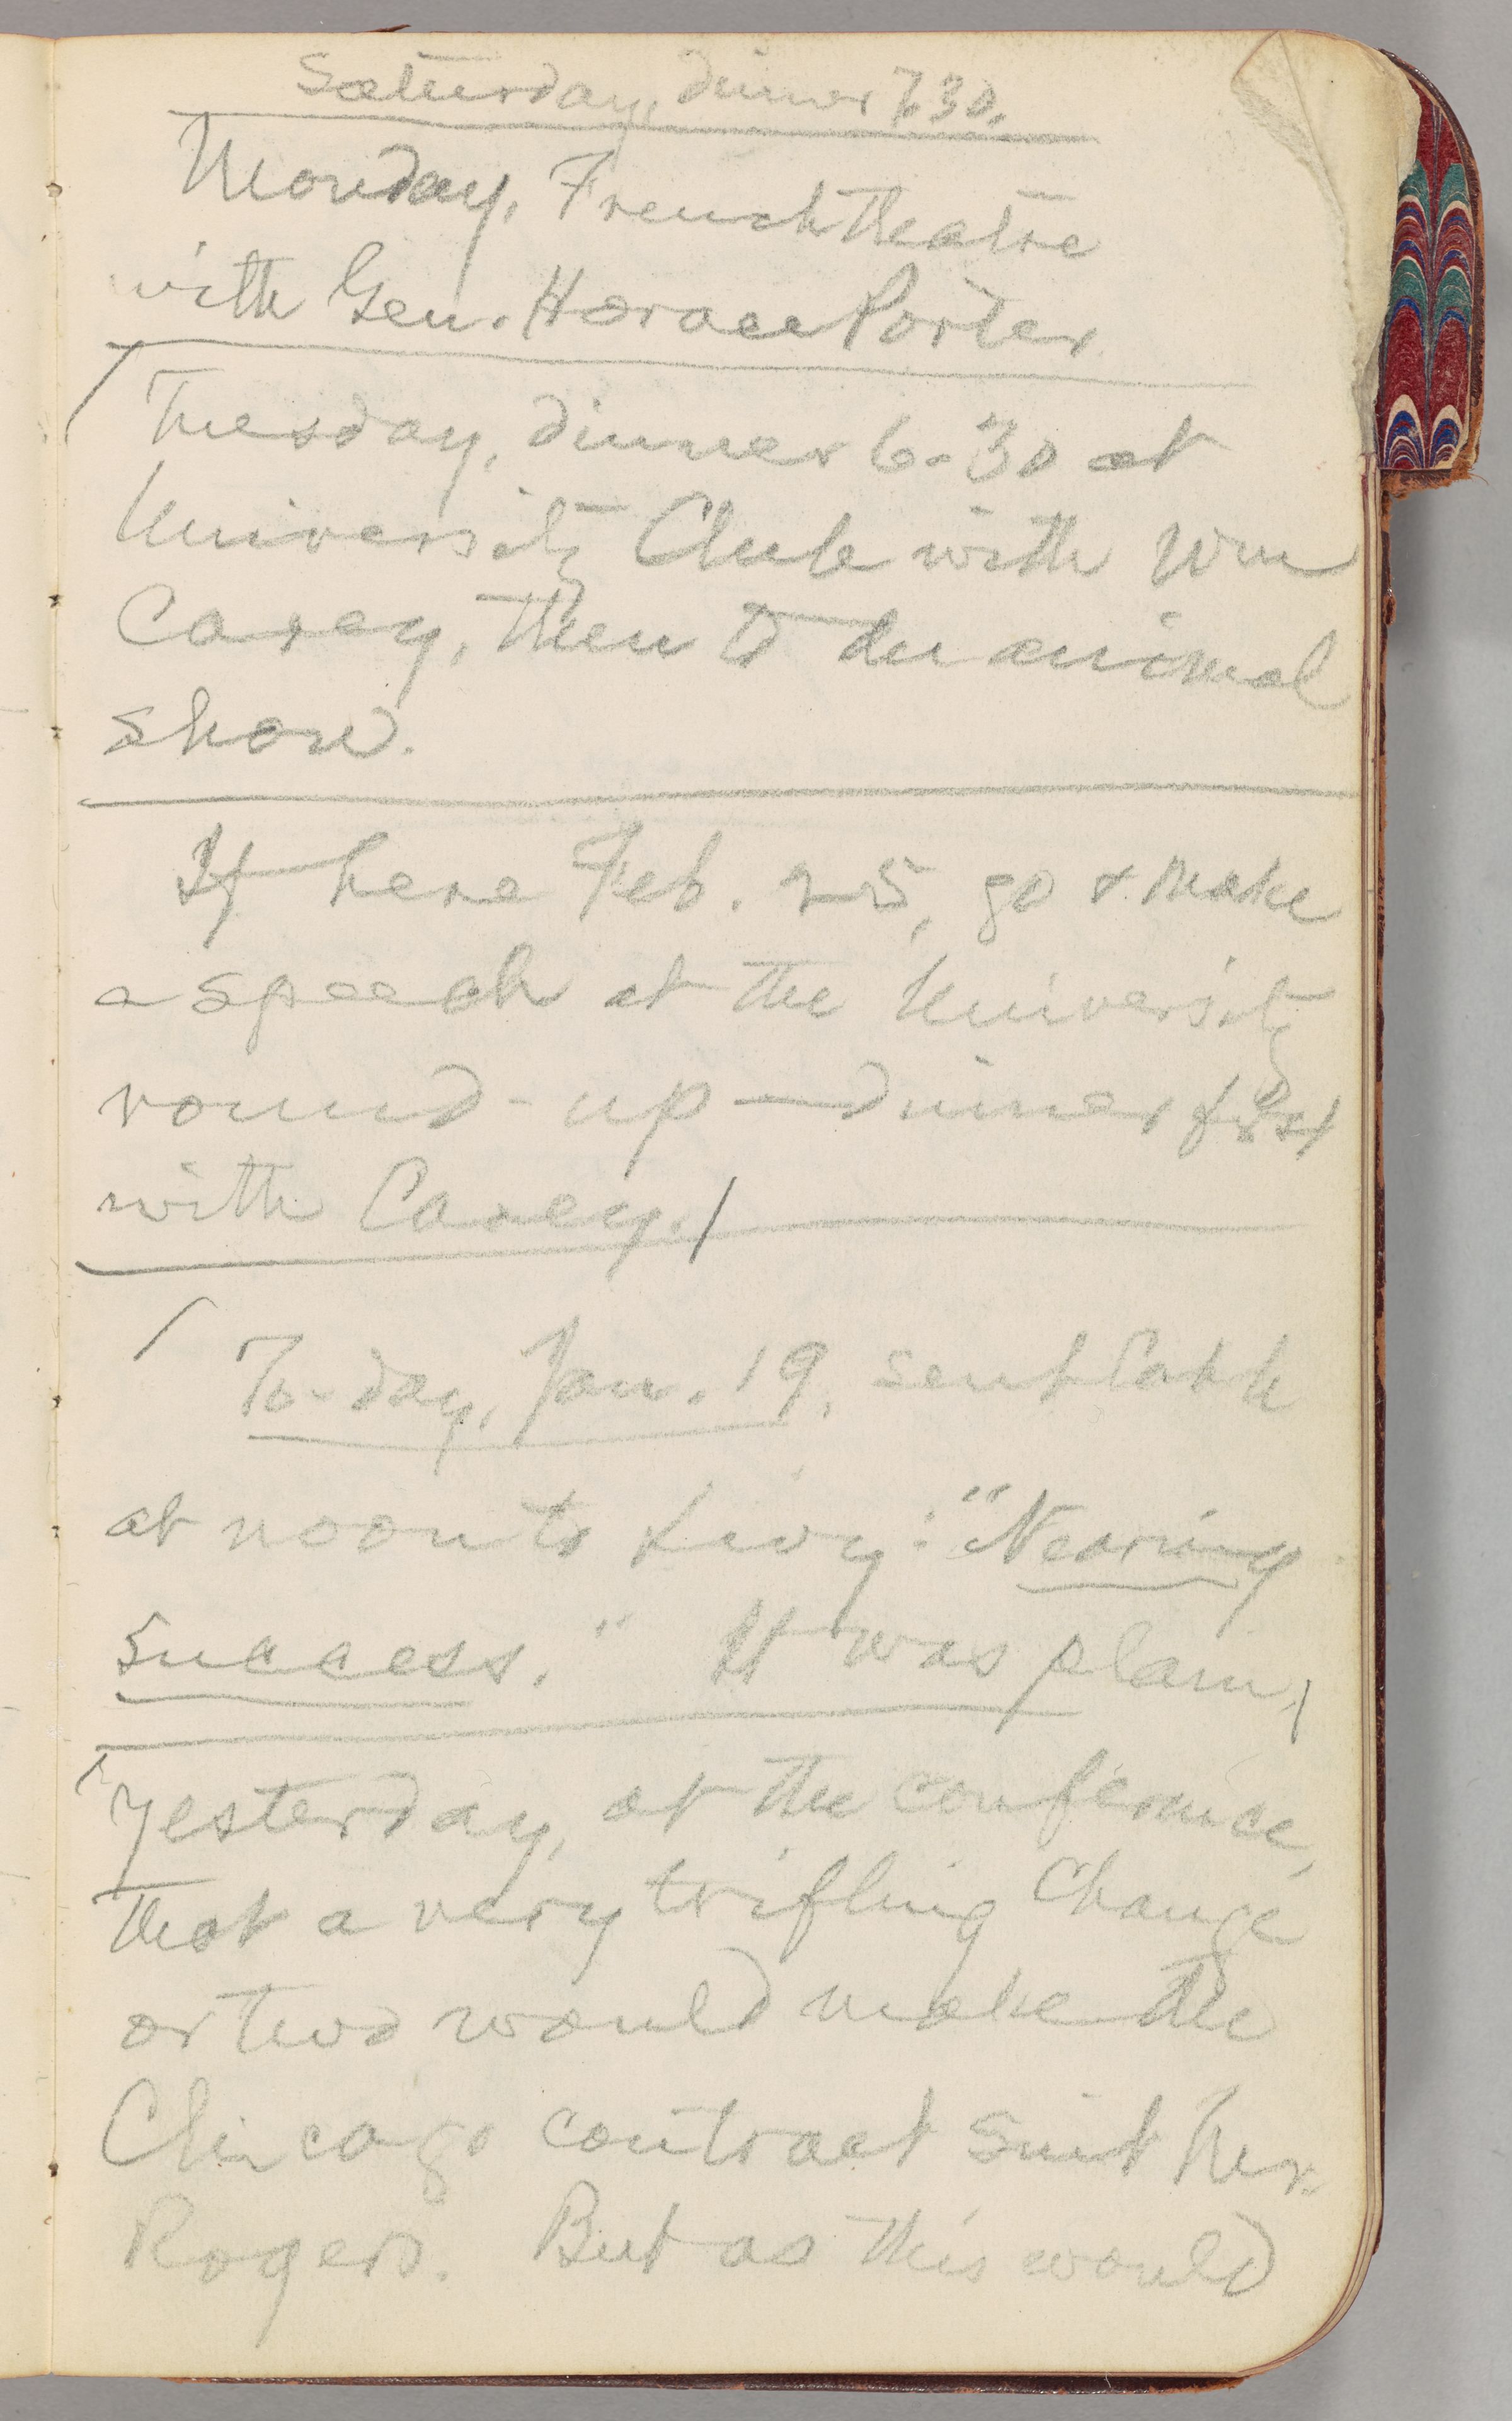 Saturday, dinner 7.30.
Monday, French theatre
with Gen. Horace Porter
Tuesday, dinner 6.30 at
University Club with Wm
Carey, then to the animal
show.
If here Feb. 25, go & make
a speech at the University
round-up—dinner first
with Carey.
To-day, Jan. 19, sent Cable
at noon to Livy: "Nearing
success." It was plain,
yesterday, at the conference,
that a very trifling change
or two would make the
Chicago contract suit Mr.
Rogers. But as this would